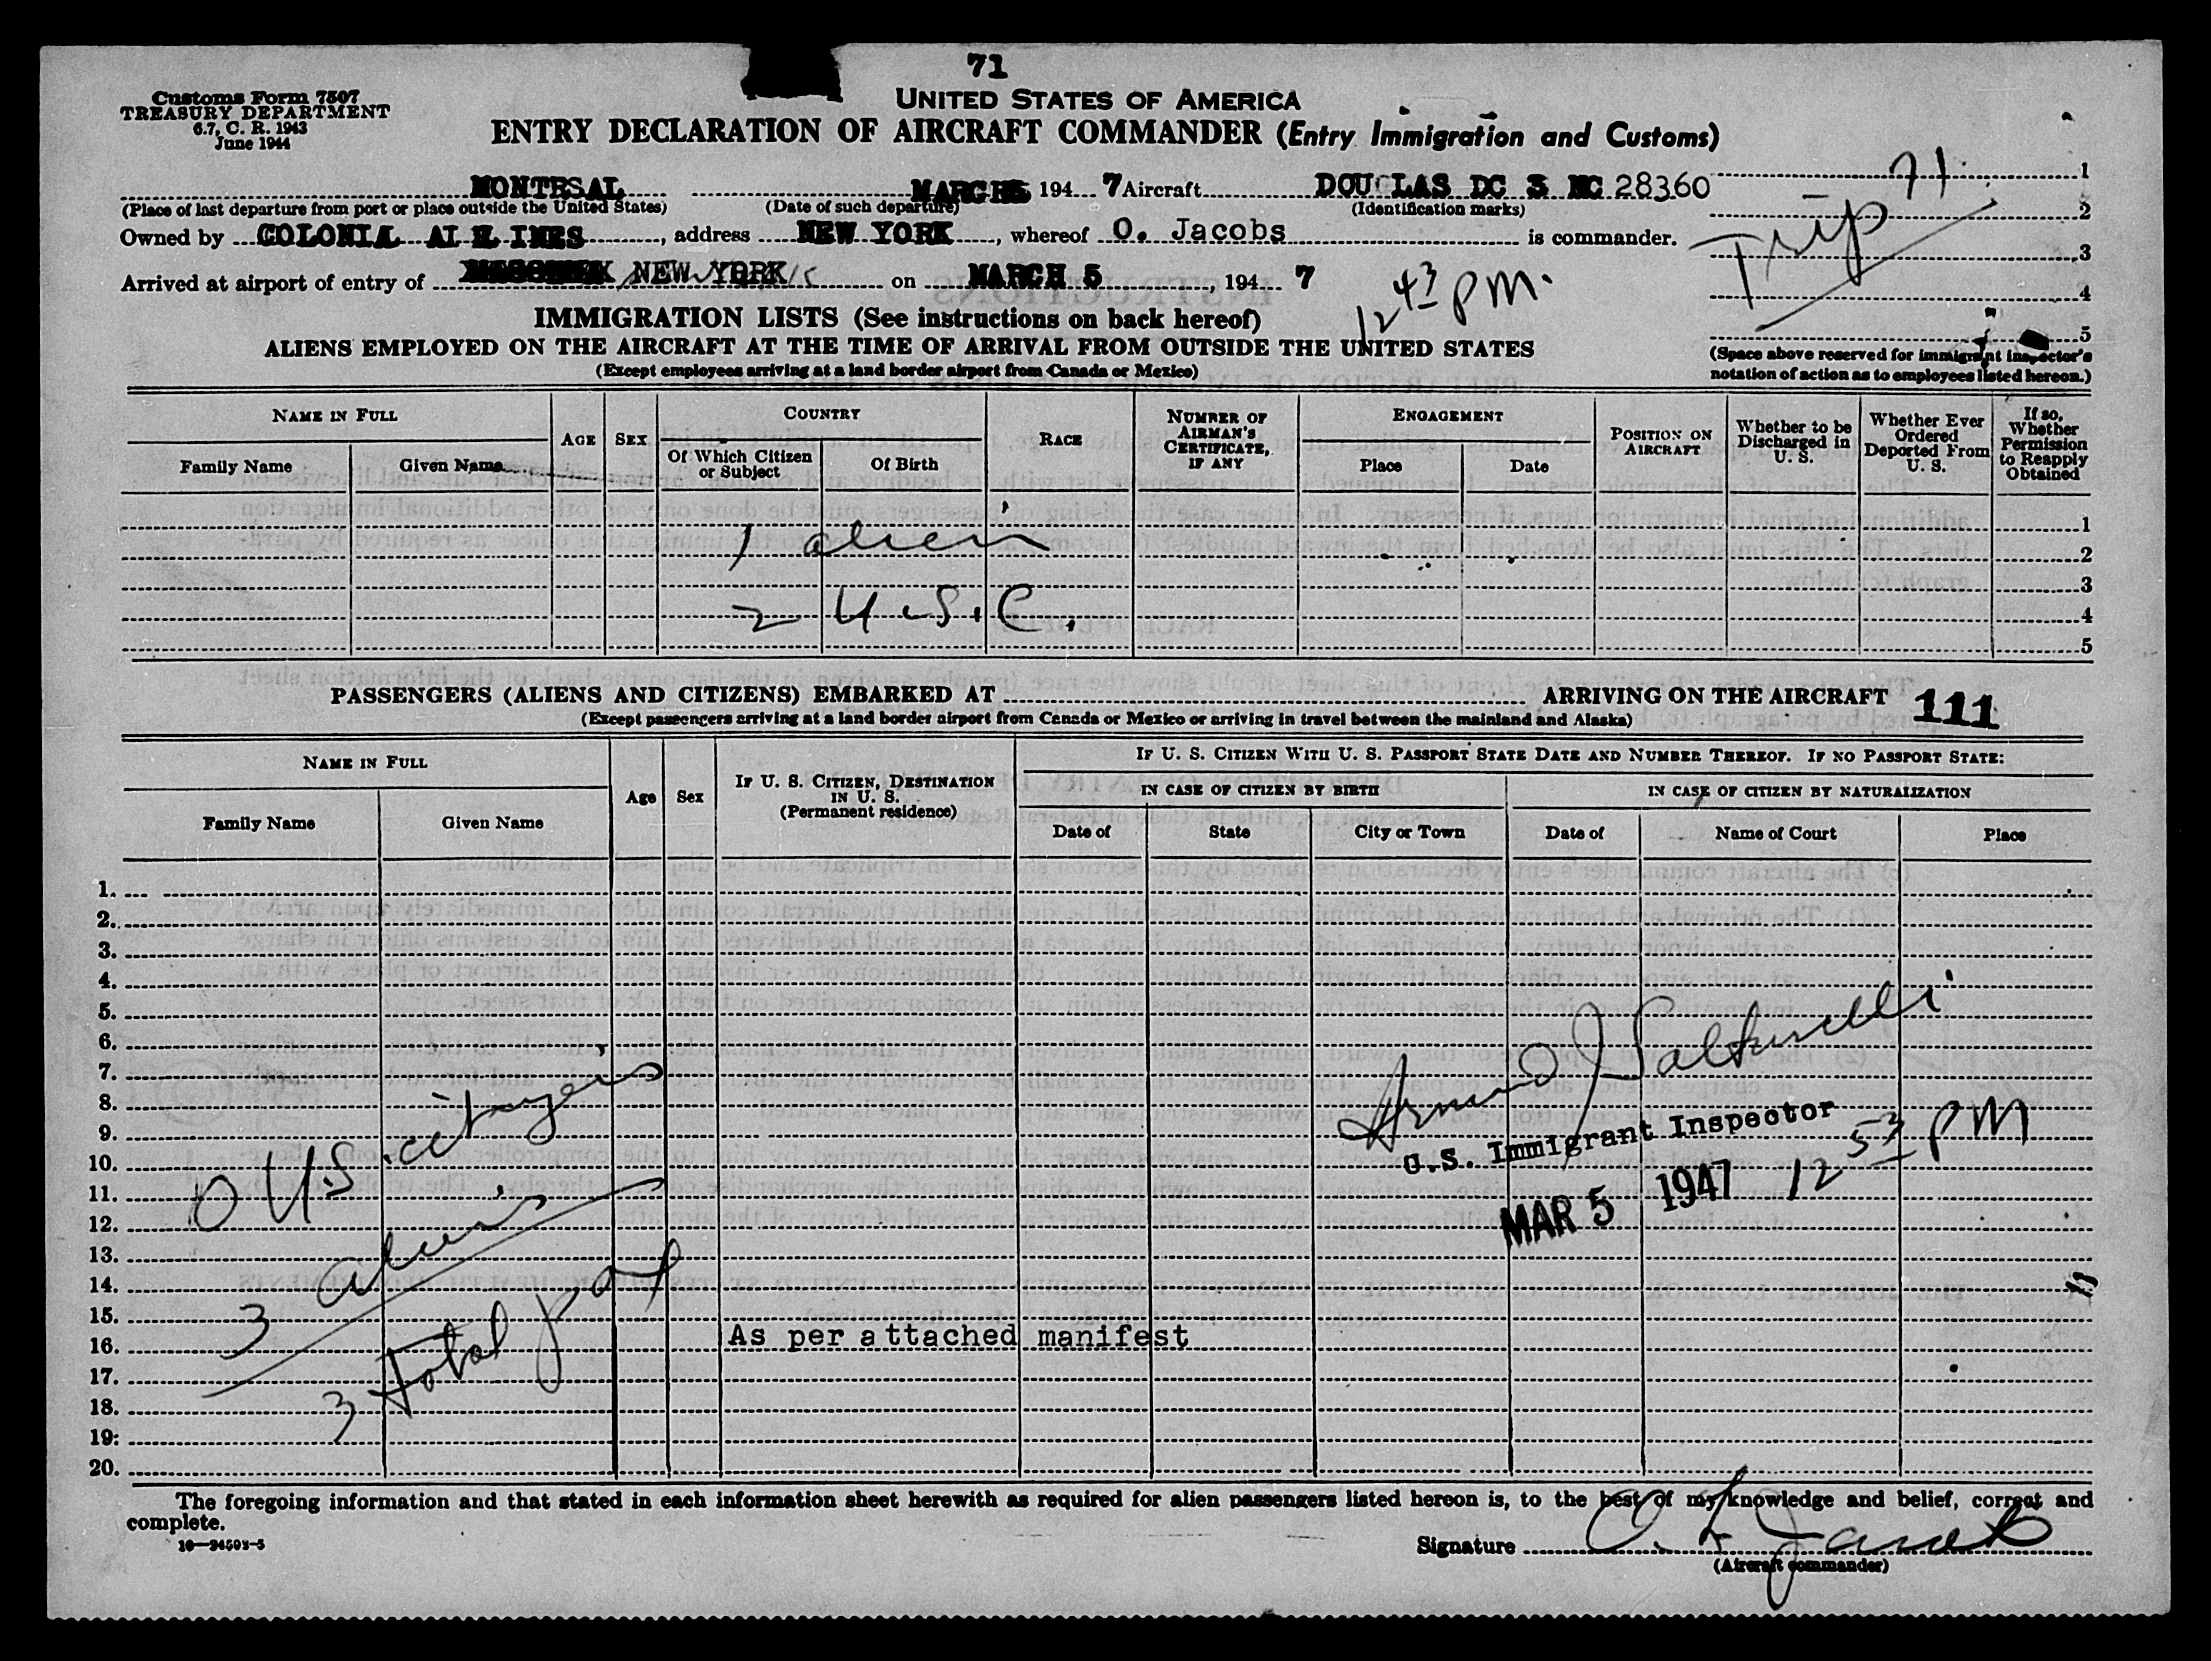 71
Customs Form 7507
TREASURY DEPARTMENT
6.7, C. R. 1943
June 1944
UNITED STATES OF AMERICA
ENTRY DECLARATION OF AIRCRAFT COMMANDER (Entry Immigration and Customs)
MONTRSAL MARCH5 194 7 Aircraft DOUGLAS DC 3 NC 28360
(Place of last departure from port or place outside the United States) (Date of such departure) (Identification marks)
Owned by COLONIAL AIRLINES, address NEW YORK, whereof O. Jacobs is commander.
Arrived at airport of entry of NEW YORK on MARCH 5, 194 7
12 43 PM.
Trip 71
1
2
3
4
5
(Space above reserved for immigrant inspector's
notation of action as to employees listed hereon.)
IMMIGRATION LISTS (See instructions on back hereof)
ALIENS EMPLOYED ON THE AIRCRAFT AT THE TIME OF ARRIVAL FROM OUTSIDE THE UNITED STATES
(Except employees arriving at a land border airport from Canada or Mexico)
NAME IN FULL
Family Name Given Name
AGE SEX
COUNTRY
Of Which Citizen or Subject Of Birth
RACE
NUMBER OF AIRMAN'S CERTIFICATE, IF ANY
ENGAGEMENT
Place Date
POSITION ON AIRCRAFT
Whether to be Discharged in U. S.
Whether Ever Ordered Deported From U. S.
If so, Whether Permission to Reapply Obtained
1
1 alien 2
3
2 U.S.C. 4
5
PASSENGERS (ALIENS AND CITIZENS) EMBARKED AT ARRIVING ON THE AIRCRAFT 111
(Except passengers arriving at a land border airport from Canada or Mexico or arriving in travel between the mainland and Alaska)
NAME IN FULL
Family Name Given Name
Age Sex
IF U. S. CITIZEN, DESTINATION IN U. S. (Permanent residence)
IF U. S. CITIZEN WITH U. S. PASSPORT STATE DATE AND NUMBER THEREOF. IF NO PASSPORT STATE:
IN CASE OF CITIZEN BY BIRTH
Date of State City or Town
IN CASE OF CITIZEN BY NATURALIZATION
Date of Name of Court Place
1.
2.
3.
4.
5.
6.
7.
8.
9.
10.
11.
12.
13.
14.
15.
16.
17.
18.
19.
20.
0 U.S. citizens
3 aliens
3 total pax
Armand J Salturelli
U.S. Immigrant Inspector
MAR 5 1947 12 53 PM
As per attached manifest
The foregoing information and that stated in each information sheet herewith as required for alien passengers listed hereon is, to the best of my knowledge and belief, correct and
complete.
Signature O. L. Jacobs
(Aircraft commander)